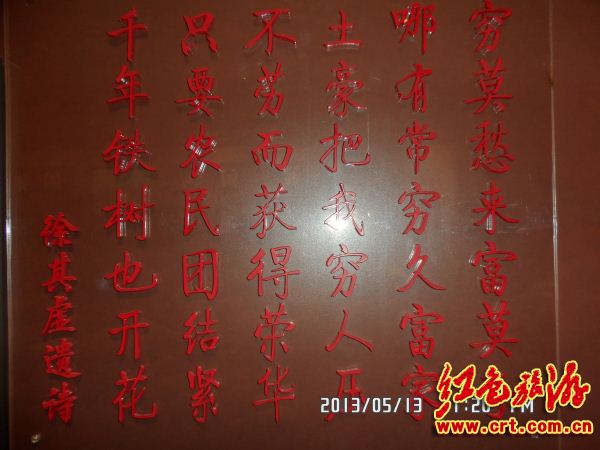 穷莫愁来富莫
哪有常穷久富家
土豪把我穷人压
不劳而获得荣华
只要农民团结紧
千年铁树也开花
徐其虚遗诗
2013/05/13 1:20 PM
红色旅游
www.crt.com.cn